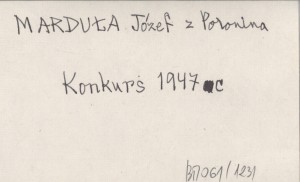 MARDUŁA Józef z Poronina
Konkurs 1947 c
BM061/1231